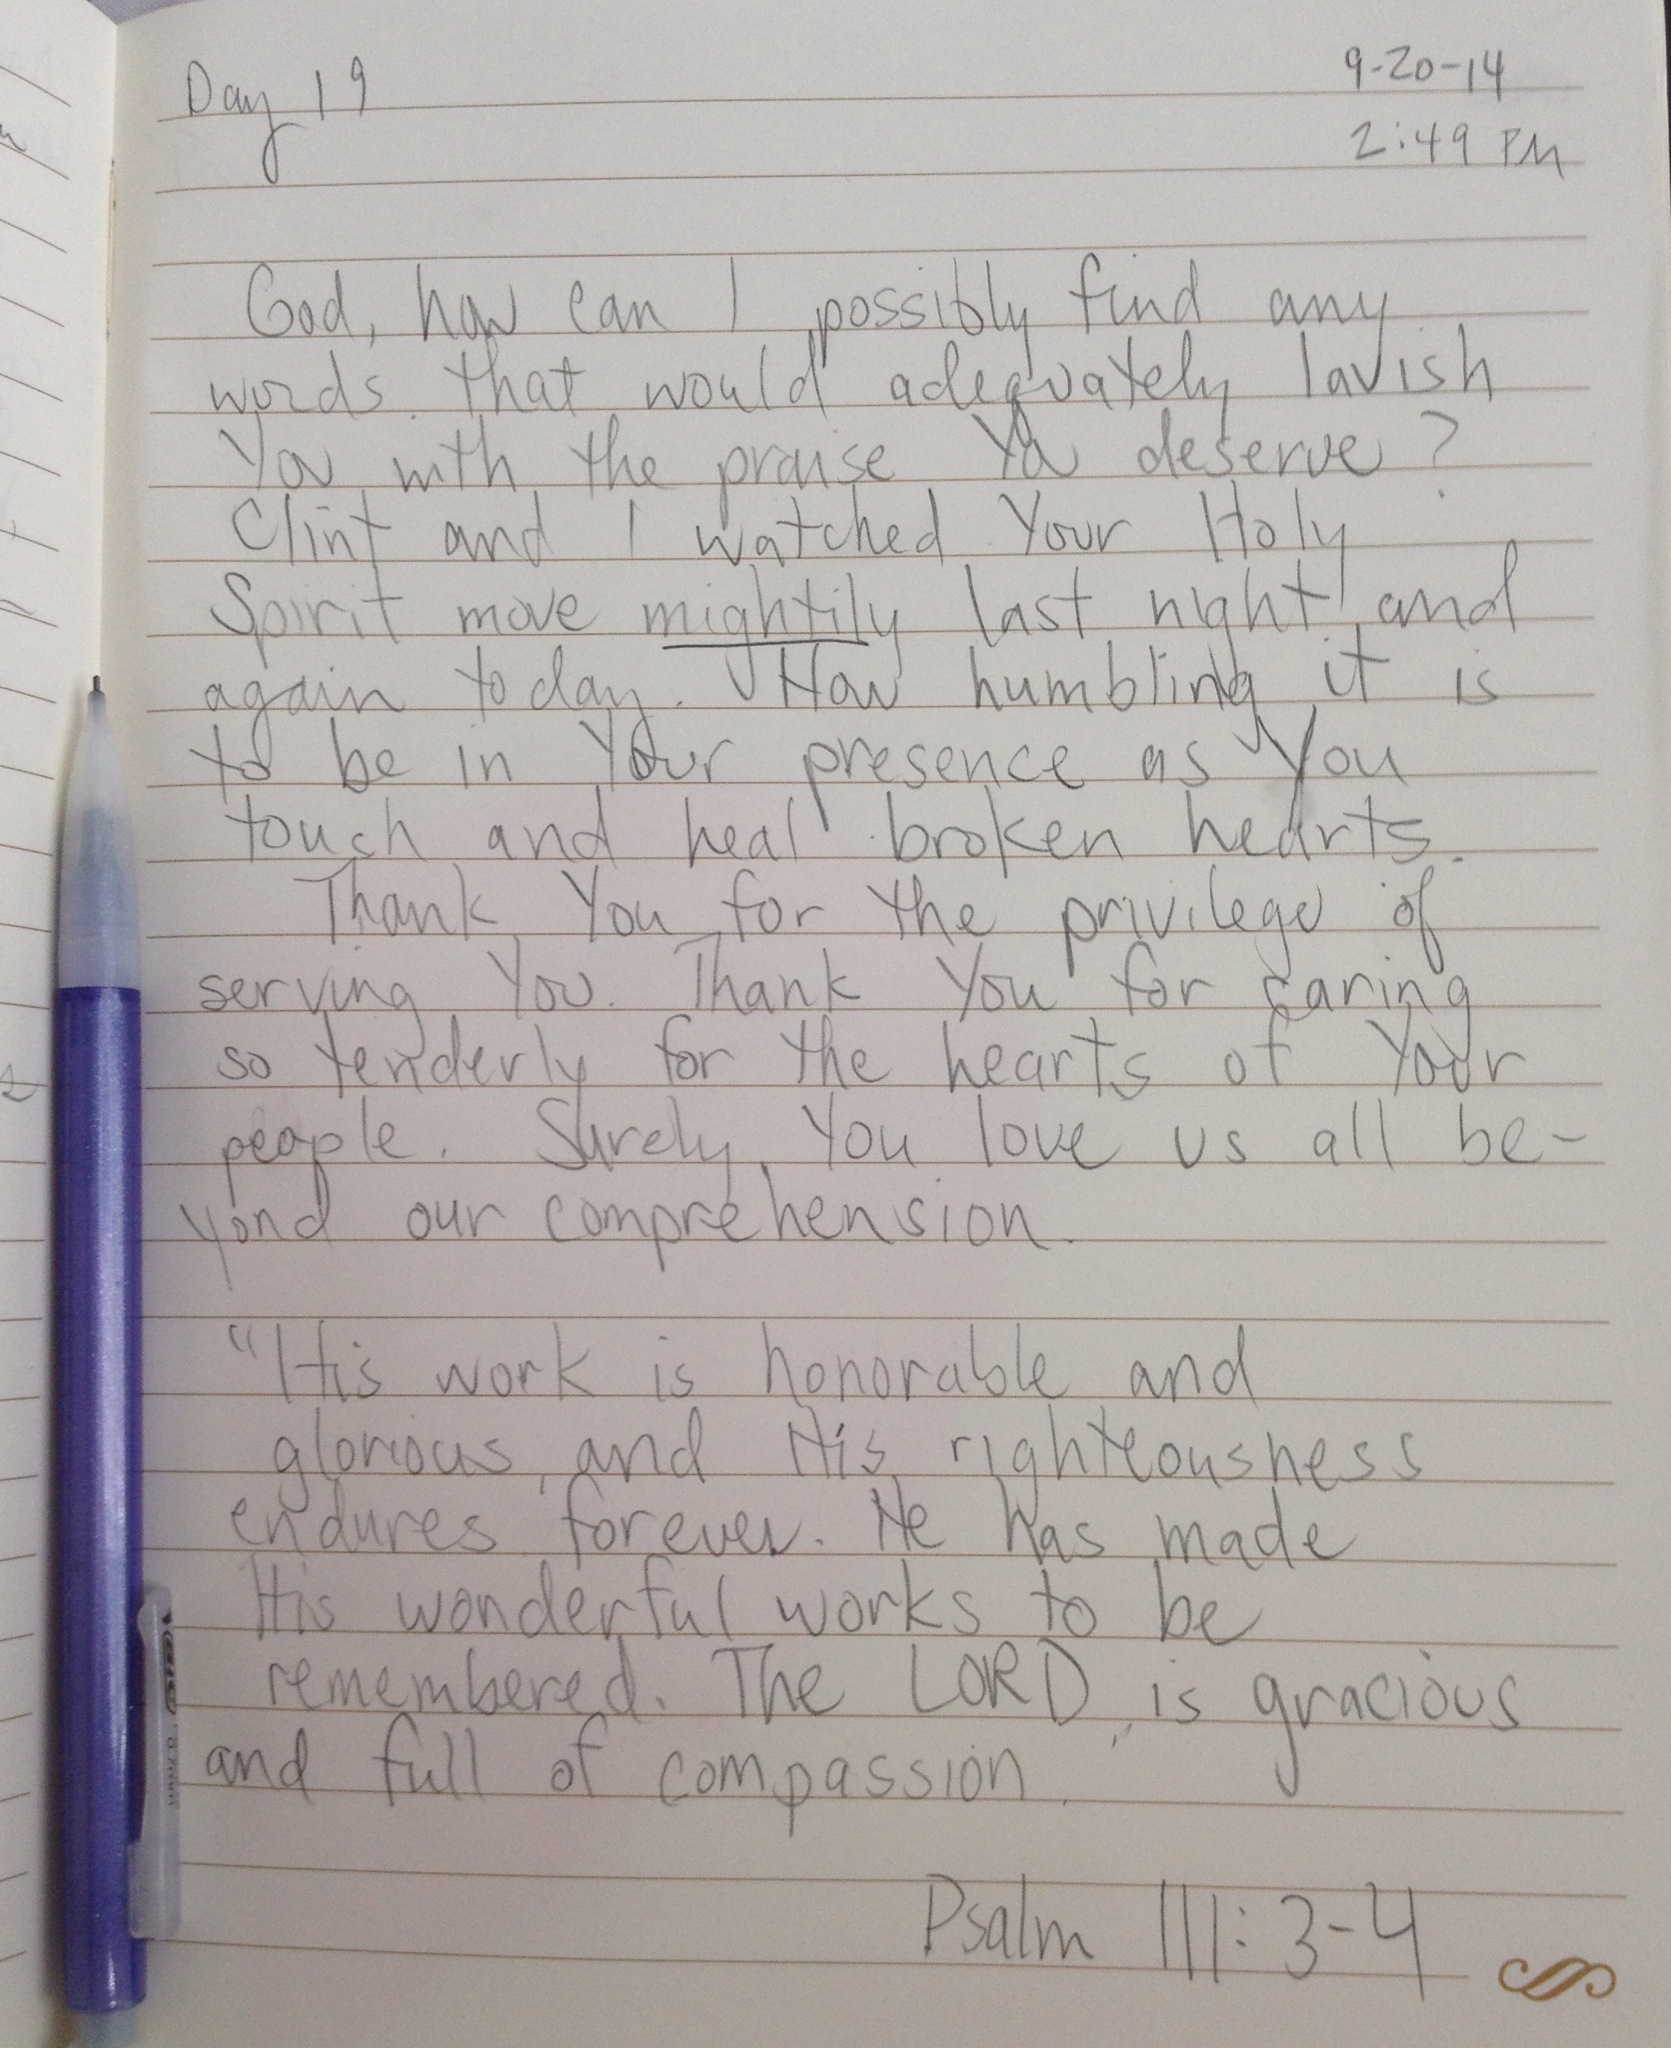 Day 19
9-20-14
2:49 PM
God, how can I possibly find any
words that would adequately lavish
You with the praise You deserve?
Clint and I watched Your Holy
Spirit move mightily last night and
again today. How humbling it is
to be in Your presence as You
touch and heal broken hearts.
Thank You for the privilege of
serving You. Thank You for caring
so tenderly for the hearts of Your
people. Surely, You love us all be-
yond our comprehension.
"His work is honorable and
glorious, and His righteousness
endures forever. He has made
His wonderful works to be
remembered. The LORD is gracious
and full of compassion."
Psalm 111:3-4
0.7mm